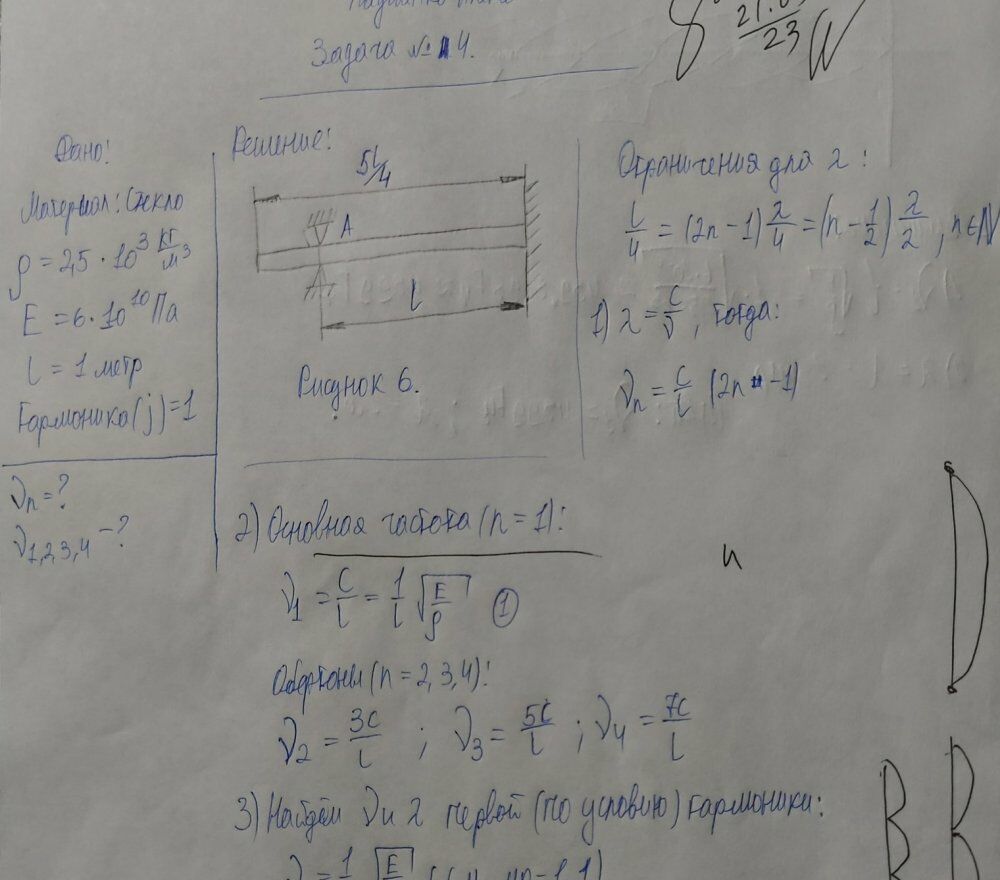 Задача № 4.
8
23
Дано:
Материал: Стекло
ρ = 2,5 · 10³ кг/м³
E = 6 · 10¹⁰ Па
l = 1 метр
Гармоника (j) = 1
νn = ?
ν1,2,3,4 – ?
Решение:
5l/4
A
l
Рисунок 6.
Ограничения для λ:
l/4 = (2n-1) λ/4 = (n - 1/2) λ/2, n ∈ N
1) λ = c/ν, тогда:
νn = c/l (2n - 1)
2) Основная частота (n = 1):
ν1 = c/l = 1/l √E/ρ ①
Обертоны (n = 2, 3, 4):
ν2 = 3c/l ; ν3 = 5c/l ; ν4 = 7c/l
и
3) Найдём ν и λ первой (по условию) гармоники: